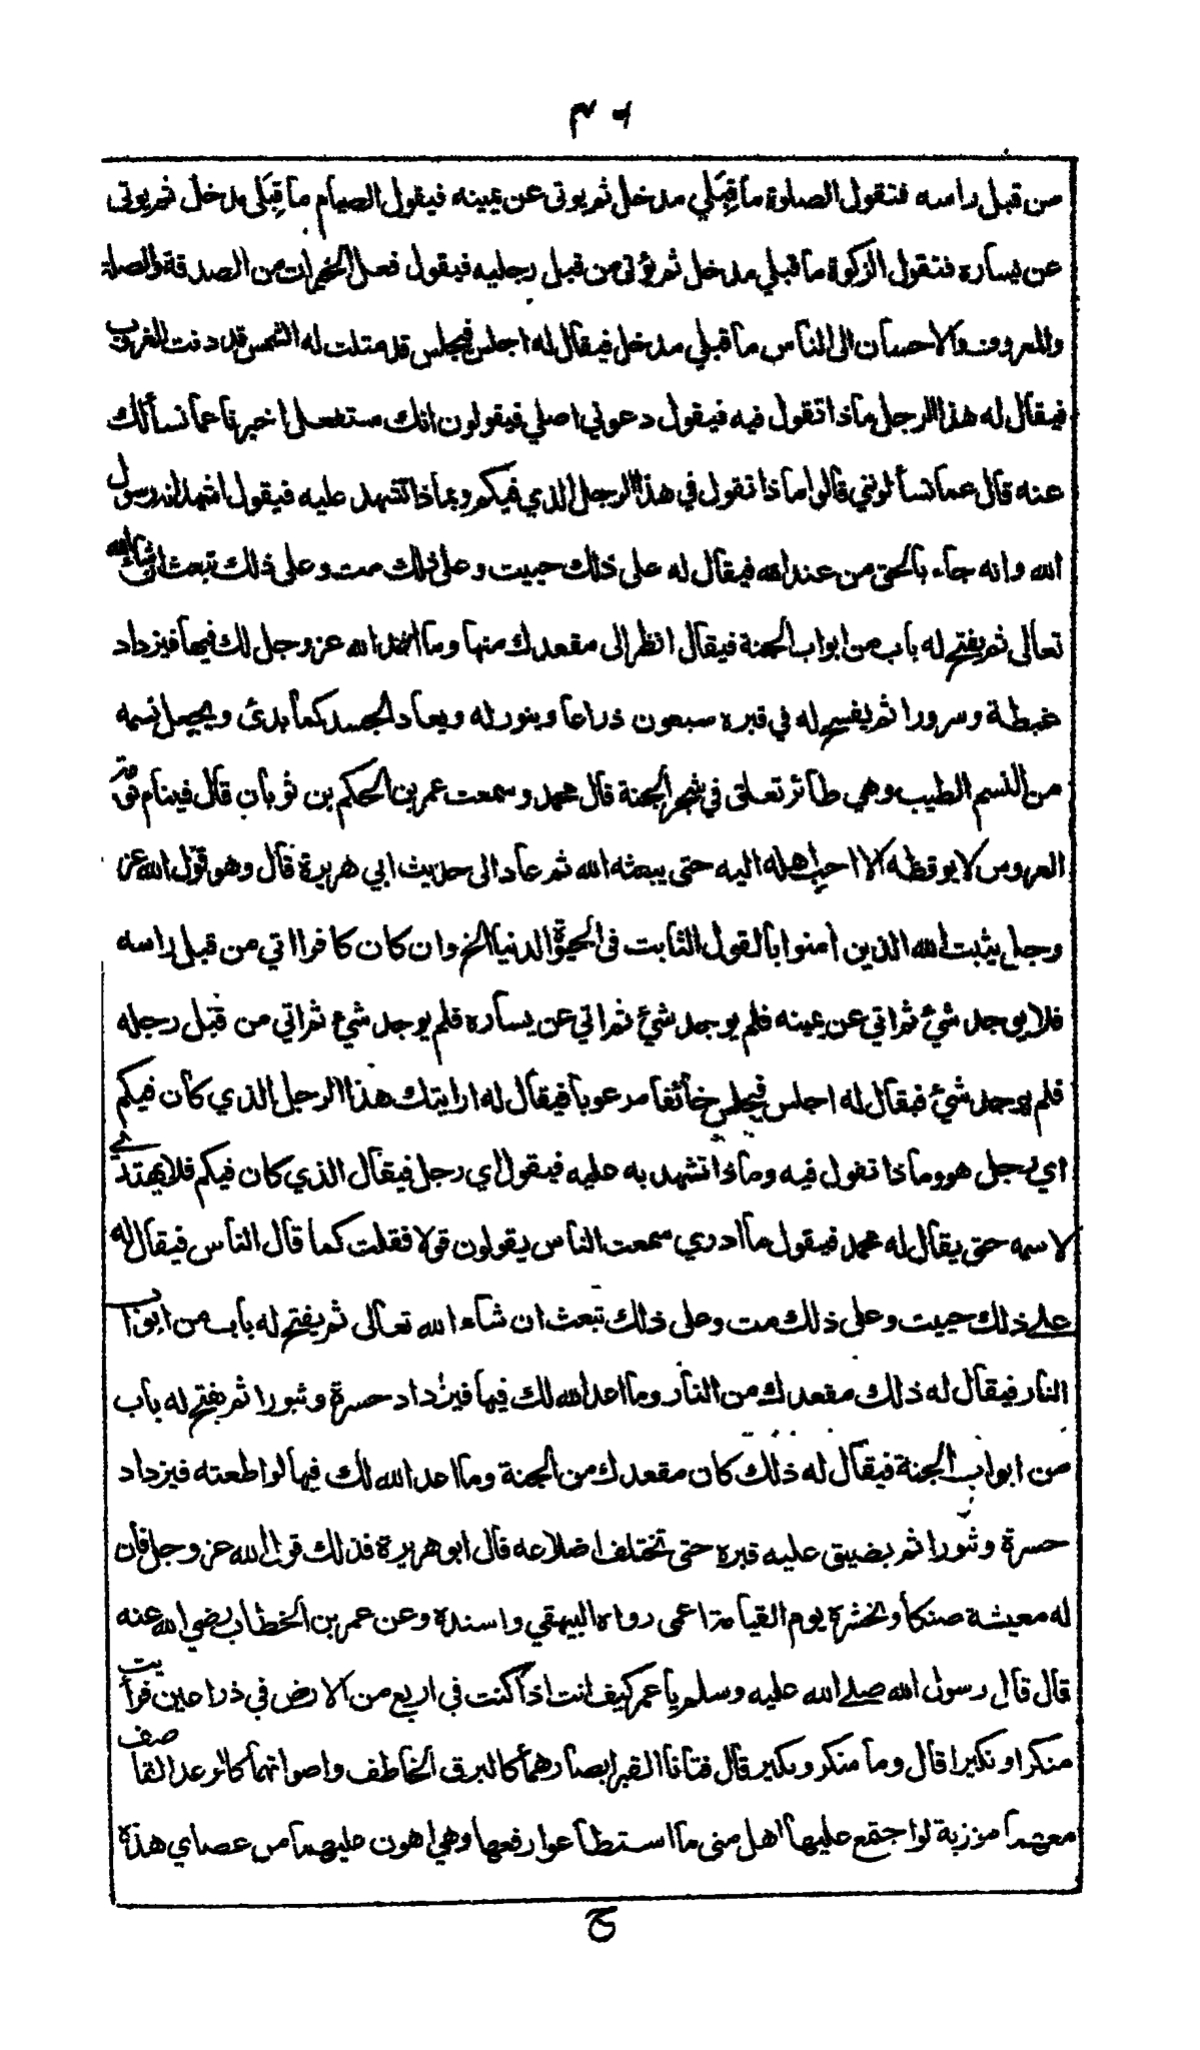 من قبل راسه فتقول الصلوة ما قِبَلي مدخل ثم يوتى عن يمينه فيقول الصيام ما قِبَلي مدخل ثم يوتى
عن يساره فتقول الزكوة ما قبلي مدخل ثم يؤتى من قبل رجليه فيقول فعل الخيرات من الصدقة والصلة
والمعروف والاحسان الى الناس ما قبلي مدخل فيقال له اجلس فيجلس قد مثلت له الشمس قد دنت للغروب
فيقال له هذا الرجل ماذا تقول فيه فيقول دعوني اصلي فيقولون انك ستفعل اخبرنا عما نسألك
عنه قال عما تسألونني قالوا ماذا تقول في هذا الرجل الذي فيكم وبماذا تشهد عليه فيقول اشهد انه رسول
الله وانه جاء بالحق من عند الله فيقال له على ذلك حييت وعلى ذلك مت وعلى ذلك تبعث ان شاء الله
تعالى ثم يفتح له باب من ابواب الجنة فيقال انظر الى مقعدك منها وما اعد الله عز وجل لك فيها فيزداد
غبطة وسرورا ثم يفسح له في قبره سبعون ذراعا وينور له ويعاد الجسد كما بدئ ويجعل نسمه
من النسم الطيب وهي طائر تعلق في شجر الجنة قال محمد وسمعت عمر بن الحكم بن ثوبان قال فينام نومة
العروس لا يوقظه الا احب اهله اليه حتى يبعثه الله ثم عاد الى حديث ابي هريرة قال وهو قول الله عز
وجل يثبت الله الذين امنوا بالقول الثابت فى الحيوة الدنيا الخ وان كان كافرا اتي من قبل راسه
فلا يوجد شئ ثم اتي عن يمينه فلم يوجد شئ ثم اتي عن يساره فلم يوجد شيء ثم اتي من قبل رجله
فلم يوجد شئ فيقال له اجلس فيجلس خائفا مرعوبا فيقال له ارايتك هذا الرجل الذي كان فيكم
اي رجل هو وما ذا تقول فيه وماذا تشهد به عليه فيقول اي رجل فيقال الذي كان فيكم فلا يهتدي
لاسمه حتى يقال له محمد فيقول ما ادري سمعت الناس يقولون قولا فقلت كما قال الناس فيقال له
على ذلك حييت وعلى ذلك مت وعلى ذلك تبعث ان شاء الله تعالى ثم يفتح له باب من ابواب
النار فيقال له ذلك مقعدك من النار وما اعد الله لك فيها فيزداد حسرة وثبورا ثم يفتح له باب
من ابواب الجنة فيقال له ذلك كان مقعدك من الجنة وما اعد الله لك فيها لو اطعته فيزداد
حسرة وثبورا ثم يضيق عليه قبره حتى تختلف اضلاعه قال ابو هريرة فذلك قول الله عز وجل فان
له معيشة ضنكا ونحشره يوم القيامة اعمى رواه البيهقي واسنده وعن عمر بن الخطاب رضي الله عنه
قال قال رسول الله صلى الله عليه وسلم يا عمر كيف انت اذا كنت في اربع من الارض في ذراعين فرأيت
منكرا ونكيرا قال وما منكر ونكير قال فتانا القبر ابصارهما كالبرق الخاطف واصواتهما كالرعد القاصف
معهما مرزبة لو اجتمع عليها اهل منى ما استطاعوا رفعها وهي اهون عليهما من عصاي هذه
ح